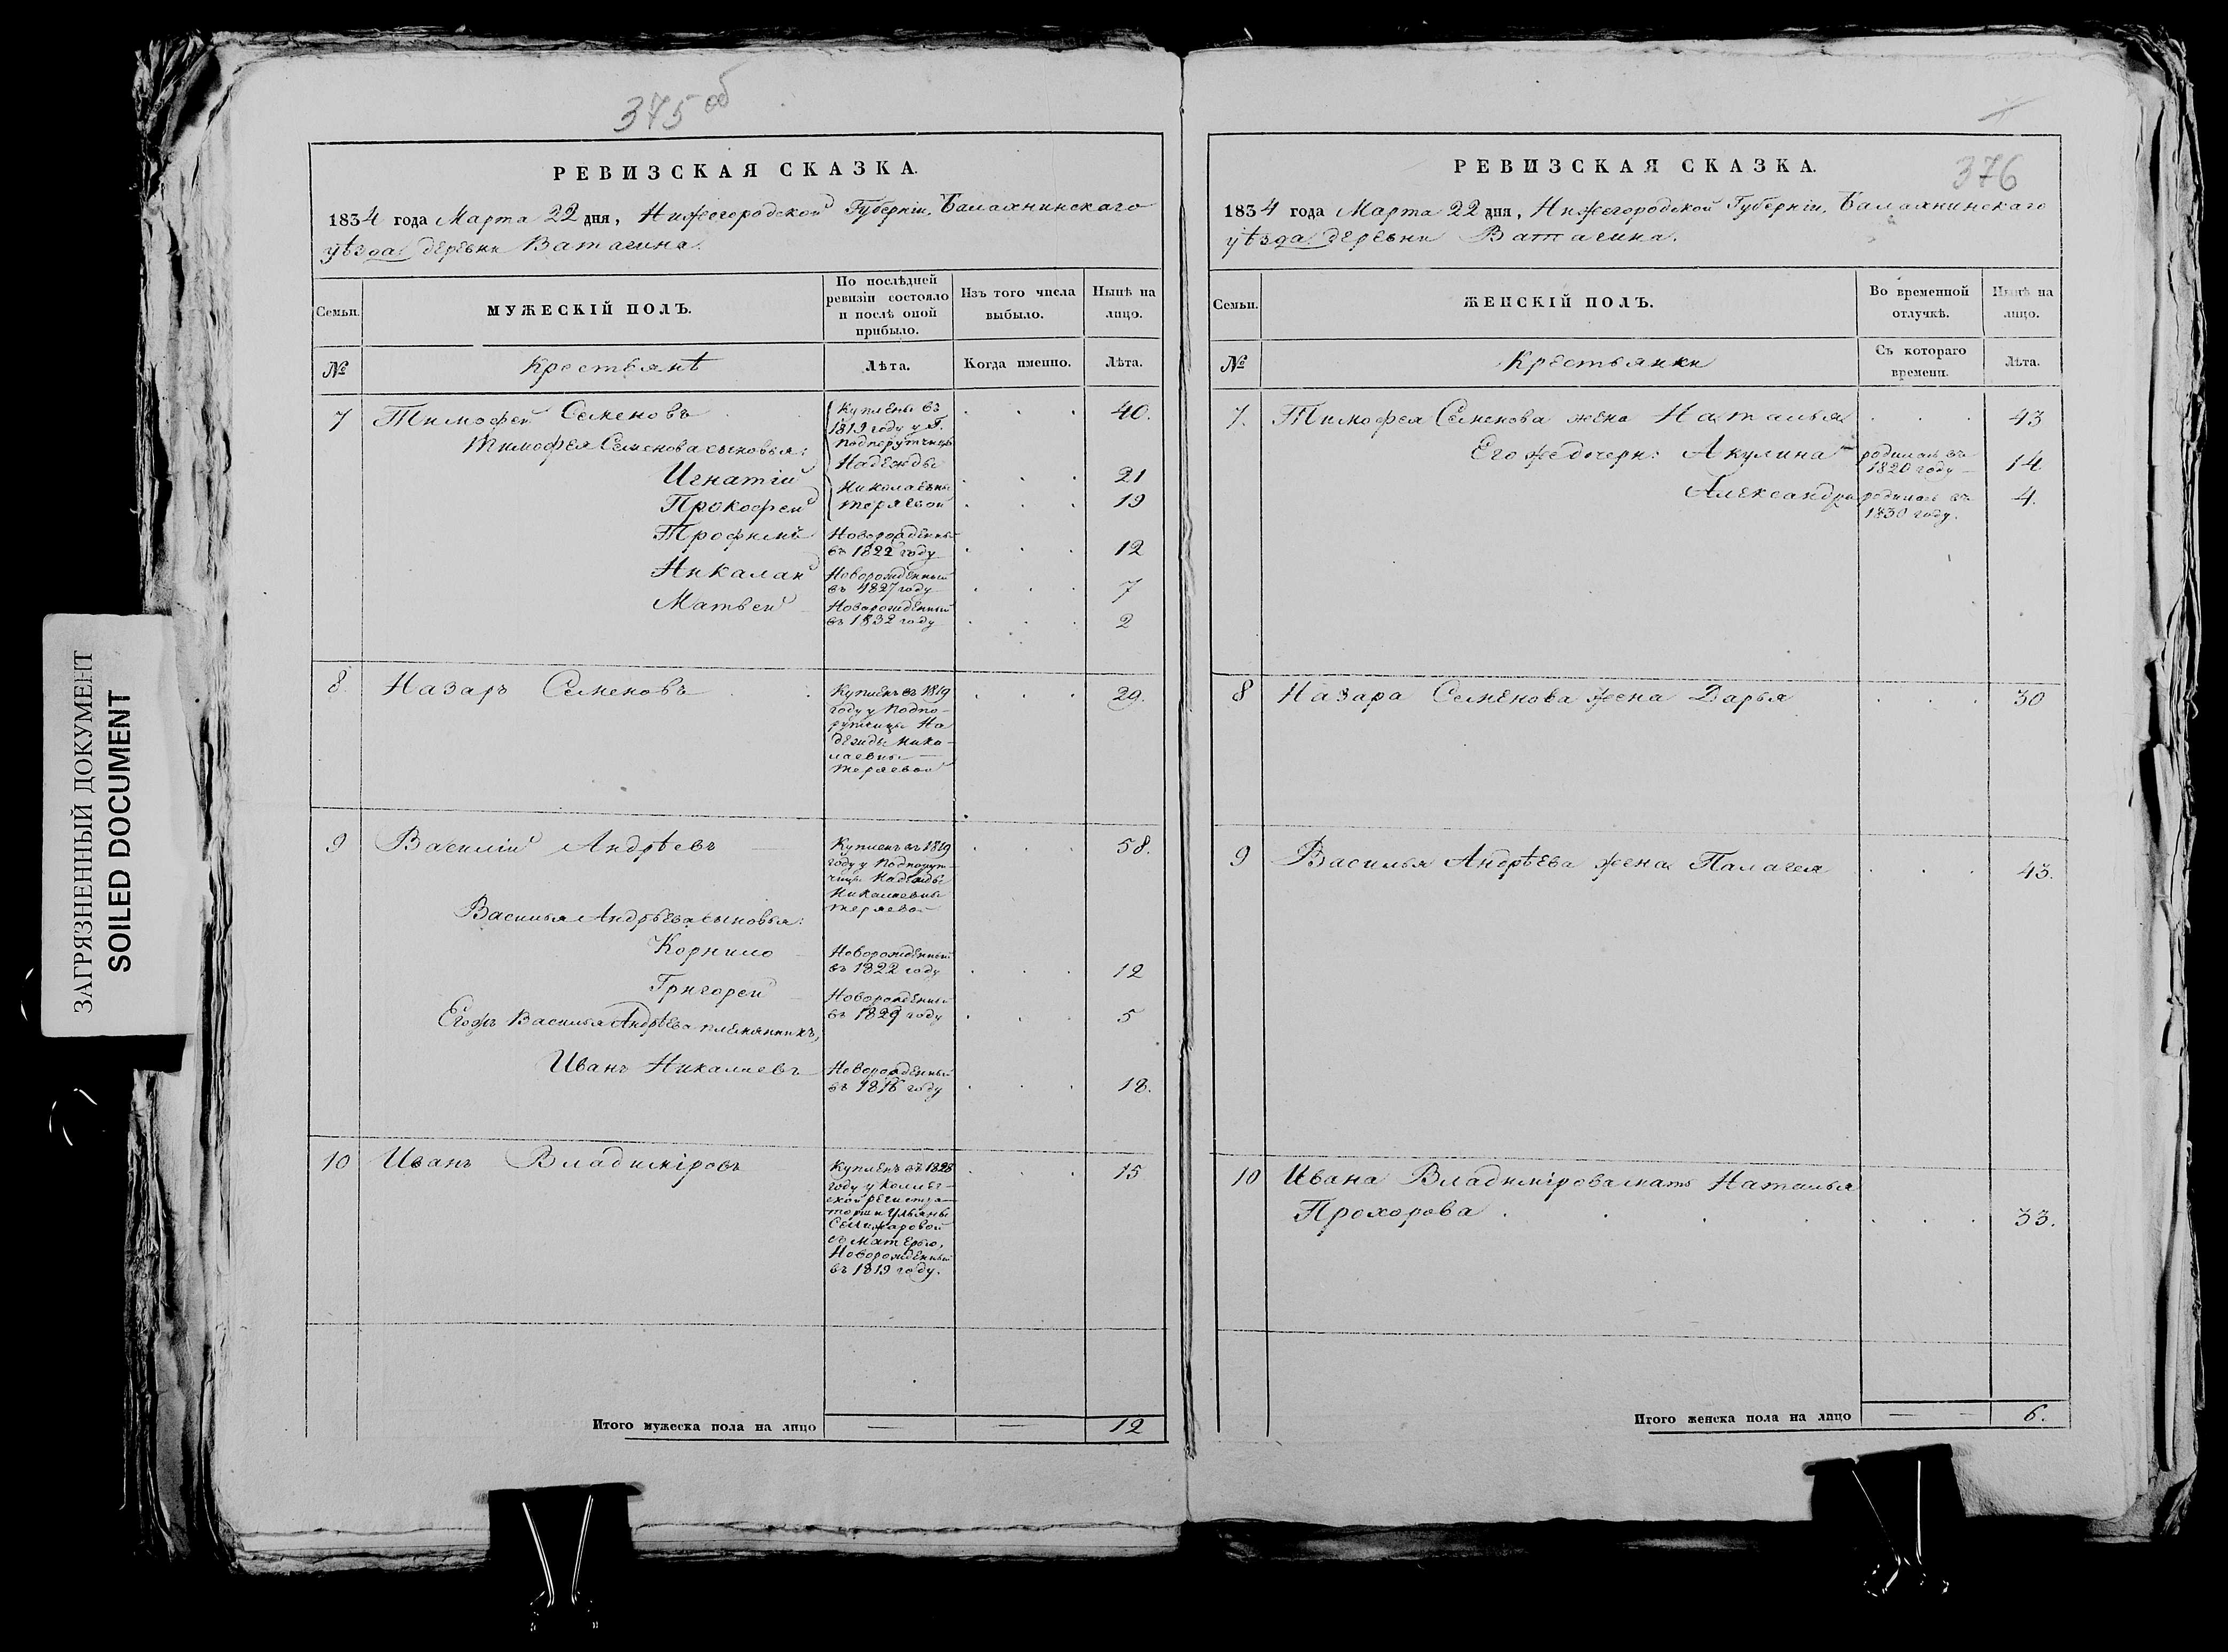 375 об
РЕВИЗСКАЯ СКАЗКА.
1834 года Марта 22 дня, Нижегородской Губерніи, Балахнинскаго
уѣзда деревни Ватагина.
Семьи.
МУЖЕСКІЙ ПОЛЪ.
По послѣдней
ревизіи состояло
и послѣ оной
прибыло.
Изъ того числа
выбыло.
Нынѣ на
лицо.
№
Крестьянѣ
Лѣта.
Когда именно.
Лѣта.
7 Тимофей Семеновъ 40.
Купленъ въ
1819 году у Г.
Подпорутчицы
Надежды
Николаевны
Теряевой
Тимофея Семенова сыновья:
Игнатій 21
Прокофей 19
Трофимъ Новорожденный
въ 1822 году 12
Николай Новорожденный
въ 1827 году 7
Матвей Новорожденный
въ 1832 году 2
8 Назаръ Семеновъ Купленъ въ 1819 29.
году у Подпо-
ручицы На
дежды Нико-
лаевны
Теряевой
9 Василій Андрѣевъ Купленъ въ 1819 58.
году у Подпорут-
чицы Надежды
Николаевны
Теряевой
Василья Андрѣева сыновья:
Корнило Новорожденный
въ 1822 году 12
Григорей Новорожденный
въ 1829 году 5
Егожъ Василья Андрѣева племянникъ,
Иванъ Николаевъ Новорожденный
въ 1816 году 18.
10 Иванъ Владиміровъ Купленъ въ 1828 15
году у Коллег-
ской регистра-
торши Ульяны
съ матерью,
Новорожденный
въ 1819 году.
Итого мужеска пола на лицо — — 12
376
РЕВИЗСКАЯ СКАЗКА.
1834 года Марта 22 дня, Нижегородской Губерніи, Балахнинскаго
уѣзда деревни Ватагина.
Семьи.
ЖЕНСКІЙ ПОЛЪ.
Во временной
отлучкѣ.
Нынѣ на
лицо.
№
Крестьянки
Съ котораго
времени.
Лѣта.
7. Тимофея Семенова жена Наталья 43
Его же дочери: Акулина родилась въ
1820 году 14
Александра родилась въ 4.
1830 году.
8 Назара Семенова жена Дарья 30
9 Василья Андрѣева жена Палагея 43.
10 Ивана Владимірова мать Наталья
Прохорова 33.
Итого женска пола на лицо — — 6.
ЗАГРЯЗНЕННЫЙ ДОКУМЕНТ
SOILED DOCUMENT